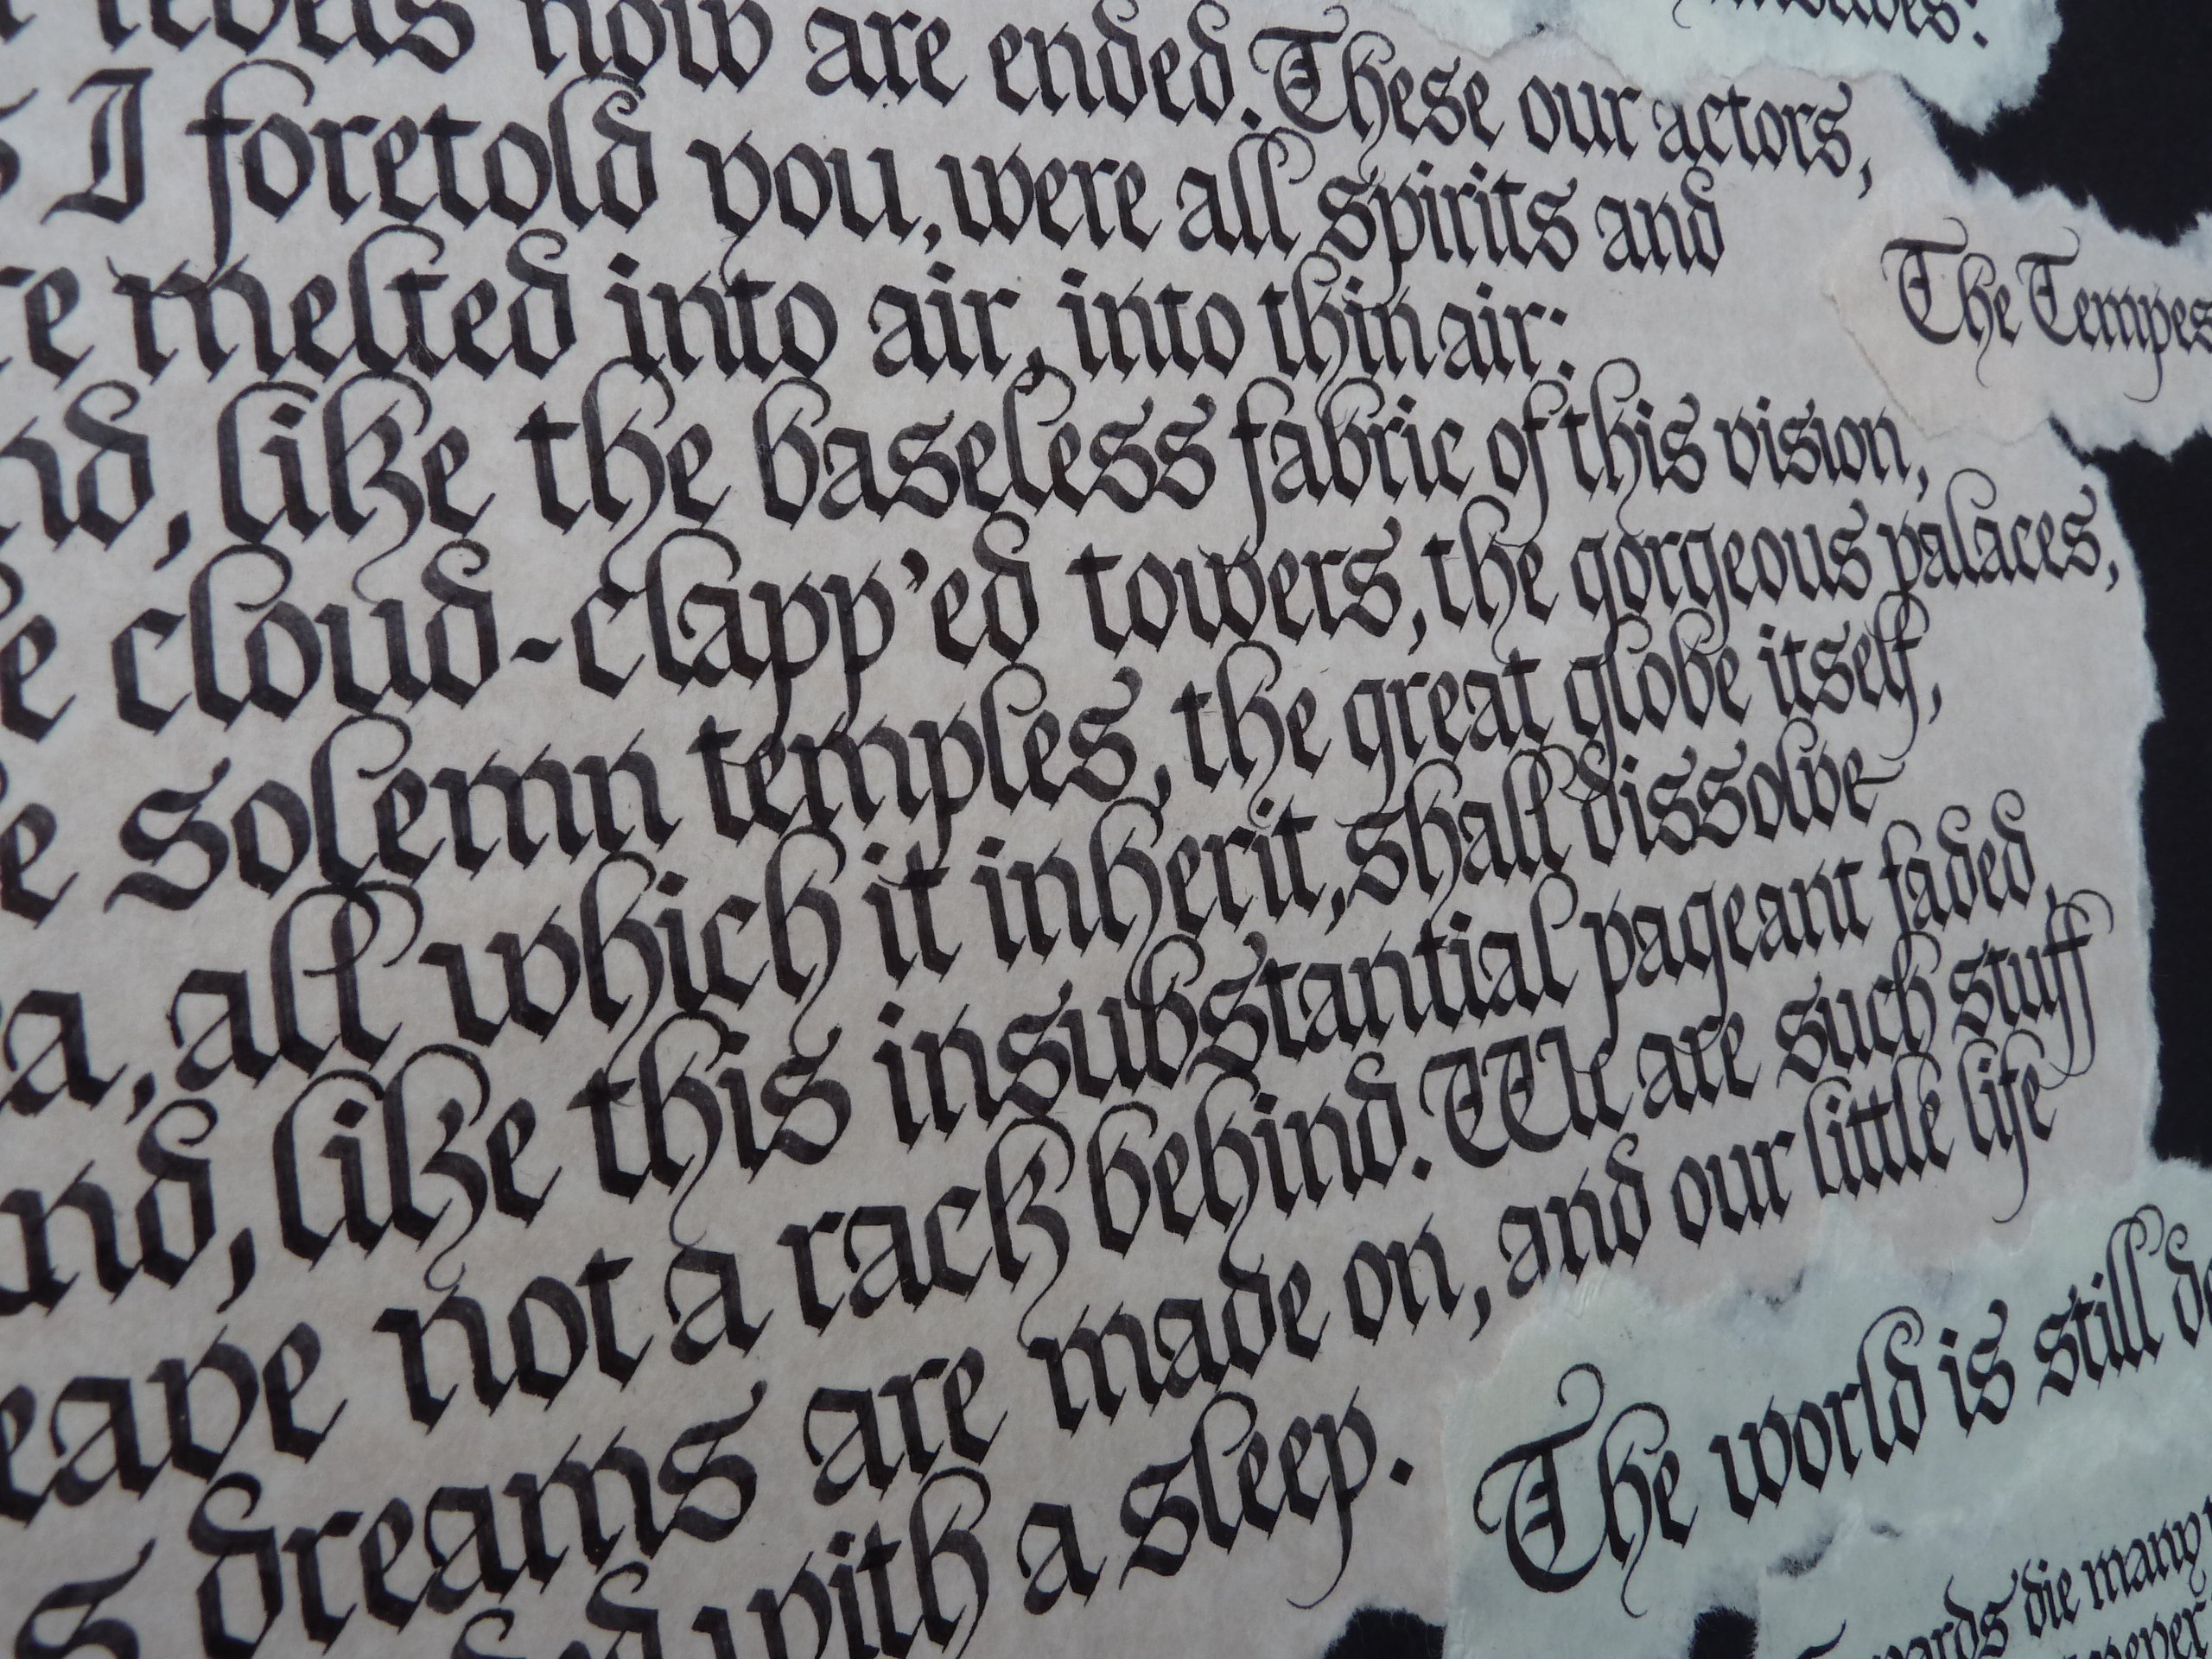 revels now are ended. These our actors,
I foretold you, were all spirits and
melted into air, into thin air:
like the baseless fabric of this vision,
cloud-clapp'ed towers, the gorgeous palaces,
solemn temples, the great globe itself,
all which it inherit, shall dissolve
nd, like this insubstantial pageant faded,
eave not a rack behind. We are such stuff
s dreams are made on, and our little life
with a sleep.
The Tempes
The world is still de
wards die many